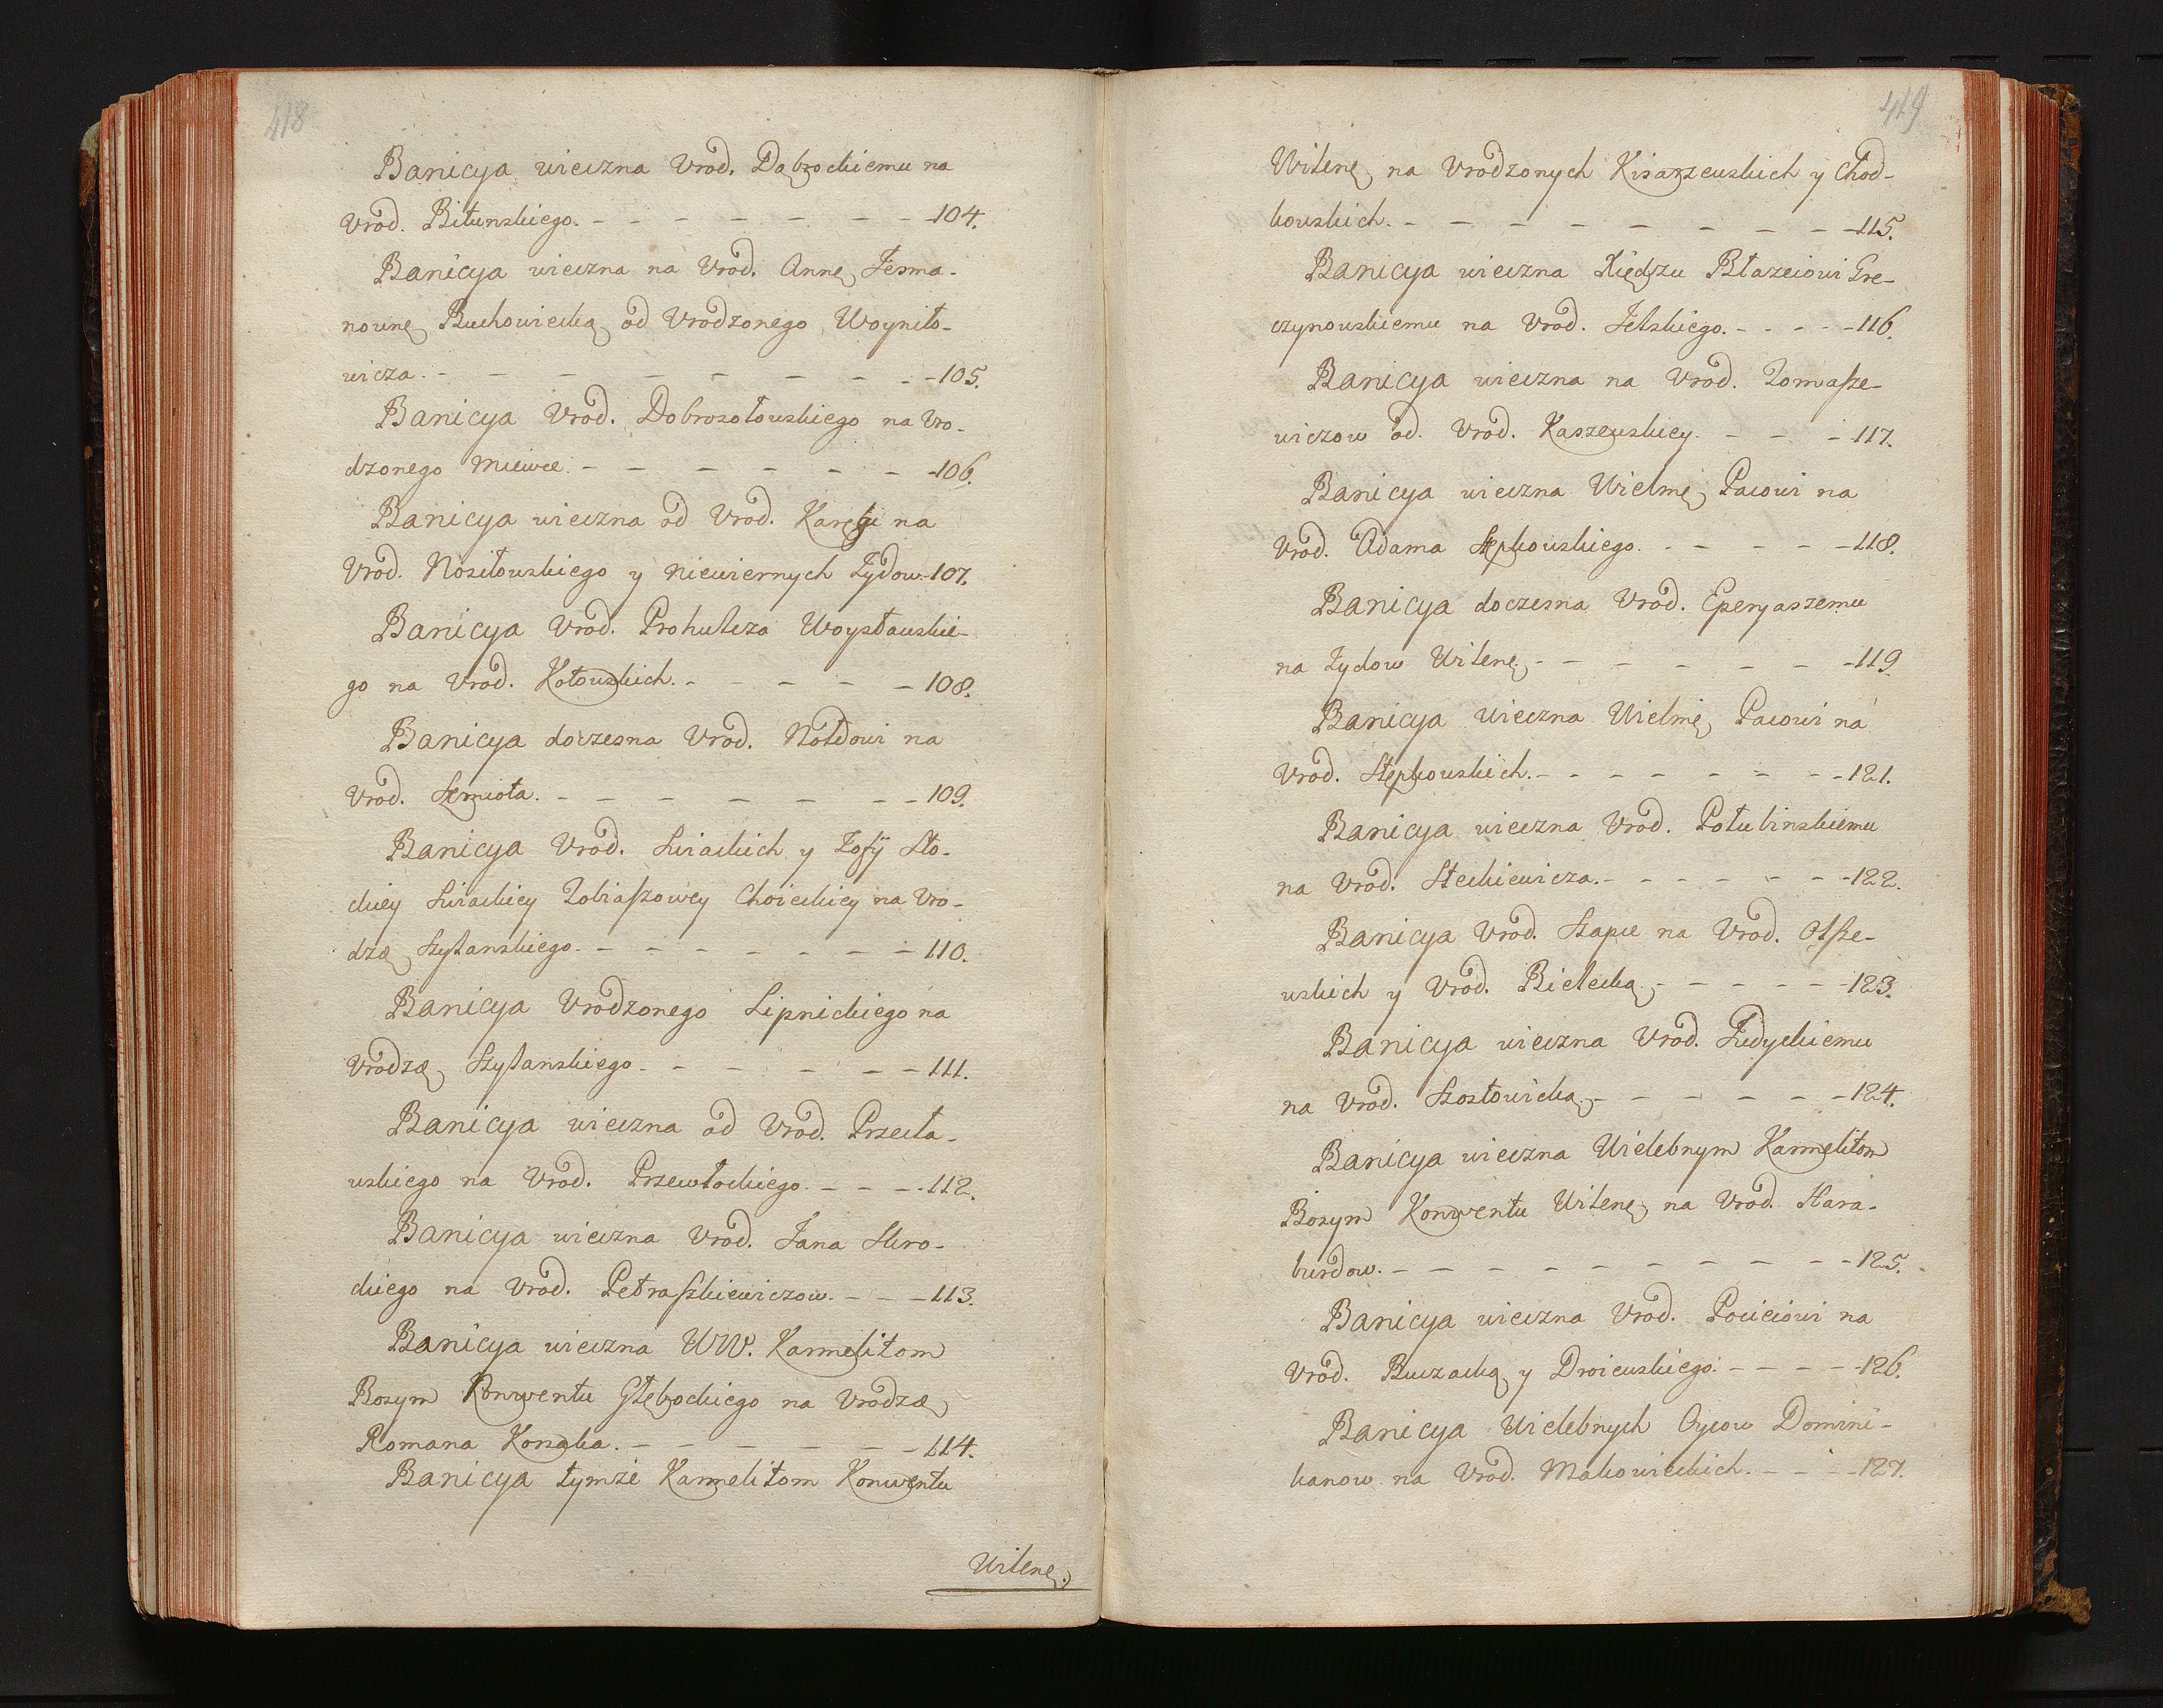 418
Banicya wieczna Vrod. Dąbrockiemu na
Vrod. Bitunskiego. - - - - - - - 104.
Banicya wieczna na Vrod. Annę Jesma-
nownę Buchowiecką od Vrodzonego Woyniło-
wicza. - - - - - - - - 105.
Banicya Vrod. Dobrosołowskiego na Vro-
dzonego - - - - - - - 106.
Banicya wieczna od Vrod. Karęgi na
Vrod. Nositowskiego y niewiernych Żydow - 107.
Banicya Vrod. Prohulcza Woysławskie-
go na Vrod. Kotowskich. - - - - - 108.
Banicya doczesna Vrod. Nołdowi na
Vrod. Szemiota. - - - - - - - 109.
Banicya Vrod. Swiackich y Zofÿ Sło-
ckiey Swiackiey Tobiaszowey Choieckiey na Vro-
dzę Szystanskiego. - - - - - - - 110.
Banicya Vrodzonego Lipnickiego na
Vrodzę Szystanskiego - - - - - - 111.
Banicya wieczna od Vrod. Przecła-
wskiego na Vrod. Przewłockiego. - - - 112.
Banicya wieczna Vrod. Jana Skro-
ckiego na Vrod. Petraszkiewiczow. - - - 113.
Banicya wieczna WW. Karmelitom
Bosym Konwentu Głębockiego na Vrodzę
Romana Korsaka. - - - - - - 114.
Banicya tymże Karmelitom Konwentu
Wilenę.
419
Wilenę na Vrodzonych Kisarzewskich y Chod-
kowskich. - - - - - - - - - 115.
Banicya wieczna Xiędzu Błazeiowi Gre-
czynowskiemu na Vrod. Jelskiego. - - - - 116.
Banicya wieczna na Vrod. Tomasze-
wiczow od Vrod. Kaszewskiey. - - - 117.
Banicya wieczna Wielmę Pacowi na
Vrod. Adama Stępkowskiego. - - - - - 118.
Banicya doczesna Vrod. Eperyaszemu
na Żydow Wilenę - - - - - - - 119
Banicya wieczna Wielmę Pacowi na
Vrod. Stępkowskich. - - - - - - - 121.
Banicya wieczna Vrod. Połubinskiemu
na Vrod. Steckiewicza. - - - - - - 122.
Banicya Vrod. Szapce na Vrod. Olsze-
wskich y Vrod. Bielecką - - - - - - 123.
Banicya wieczna Vrod. Judyckiemu
na Vrod. Szostowicką - - - - - - 124.
Banicya wieczna Wielebnym Karmelitom
Bosym Konwentu Wilenę na Vrod. Skara-
burdow. - - - - - - - - - 125.
Banicya wieczna Vrod. Pocieiowi na
Vrod. Buczacką y Droiewskiego. - - - - - 126.
Banicya Wielebnych Oycow Domini-
kanow na Vrod. Makowieckich. - - - - 127.